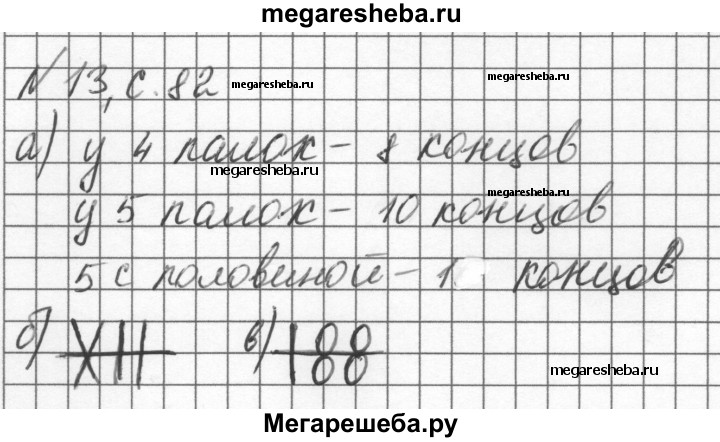 megaresheba.ru
№ 13, с. 82
megaresheba.ru
megaresheba.ru
а) у 4 палок – 8 концов
megaresheba.ru
у 5 палок – 10 концов
megaresheba.ru
5 с половиной – 1 концов
б) XII в) 188
megaresheba.ru
Мегарешеба.ру